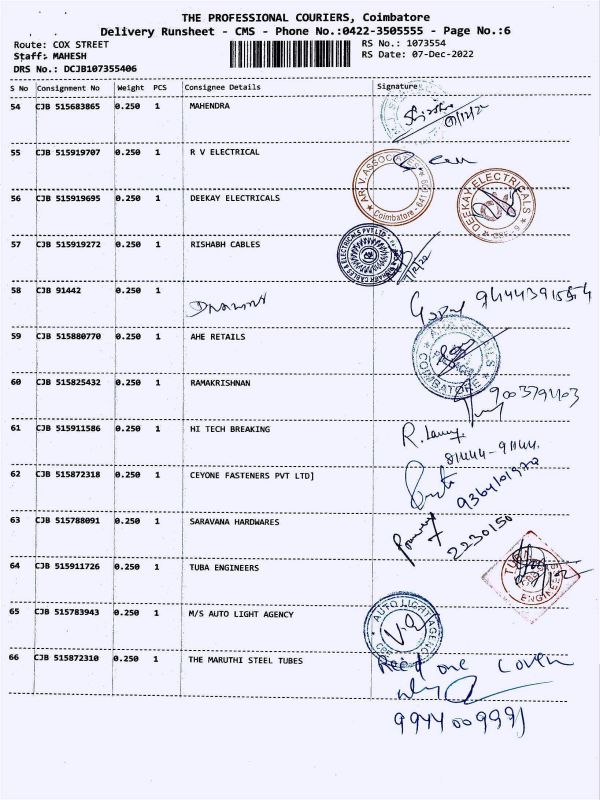 THE PROFESSIONAL COURIERS, Coimbatore
Delivery Runsheet - CMS - Phone No.:0422-3505555 - Page No.:6
Route: COX STREET RS No.: 1073554
Staff: MAHESH RS Date: 07-Dec-2022
DRS No.: DCJB107355406
S No Consignment No Weight PCS Consignee Details Signature
54 CJB 515683865 0.250 1 MAHENDRA
55 CJB 515919707 0.250 1 R V ELECTRICAL
AR.V.ASSOCIATES
Coimbatore - 641
56 CJB 515919695 0.250 1 DEEKAY ELECTRICALS
DEEKAY ELECTRICALS
57 CJB 515919272 0.250 1 RISHABH CABLES
58 CJB 91442 0.250 1
59 CJB 515880770 0.250 1 AHE RETAILS
COIMBATORE
60 CJB 515825432 0.250 1 RAMAKRISHNAN
61 CJB 515911586 0.250 1 HI TECH BREAKING
81444-91144
62 CJB 515872318 0.250 1 CEYONE FASTENERS PVT LTD]
63 CJB 515788091 0.250 1 SARAVANA HARDWARES
2230150
64 CJB 515911726 0.250 1 TUBA ENGINEERS
TUBA ENGINEERS
65 CJB 515783943 0.250 1 M/S AUTO LIGHT AGENCY
AUTO LIGHT AGENCY
66 CJB 515872310 0.250 1 THE MARUTHI STEEL TUBES
Recd one cover
9944009991